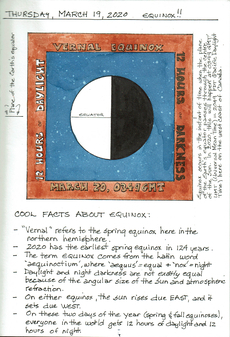 THURSDAY, MARCH 19, 2020 EQUINOX!!
Plane of the Earth's equator
VERNAL EQUINOX
12 HOURS - DAYLIGHT
12 HOURS - DARKNESS
EQUATOR
MARCH 20, 03:49 GMT
COOL FACTS ABOUT EQUINOX:
- "Vernal" refers to the spring equinox here in the
northern hemisphere.
- 2020 has the earliest spring equinox in 124 years.
- The term EQUINOX comes from the Latin word
"aequinoctium", where "aequus" = equal + "nox" = night
- Daylight and night darkness are not exactly equal
because of the angular size of the sun and atmospheric
refraction.
- On either equinox, the sun rises due EAST, and it
sets due WEST.
- On these two days of the year (spring & fall equinoxes),
everyone in the world gets 12 hours of daylight and 12
hours of night